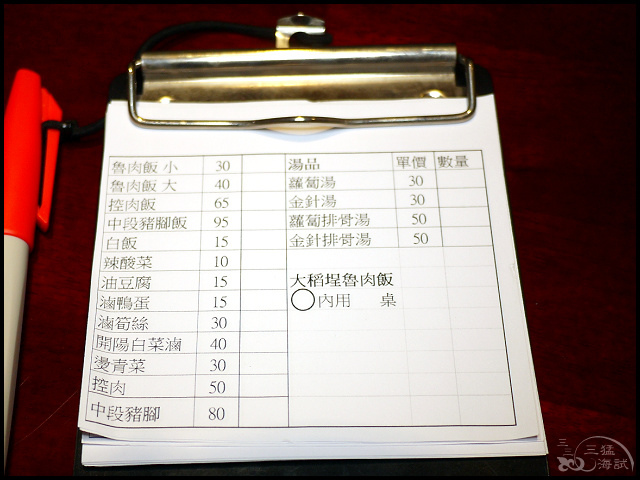 魯肉飯 小 30
魯肉飯 大 40
控肉飯 65
中段豬腳飯 95
白飯 15
辣酸菜 10
油豆腐 15
滷鴨蛋 15
滷筍絲 30
開陽白菜滷 40
燙青菜 30
控肉 50
中段豬腳 80
湯品 單價 數量
蘿蔔湯 30
金針湯 30
蘿蔔排骨湯 50
金針排骨湯 50
大稻埕魯肉飯
◯內用 桌
三猛
海試